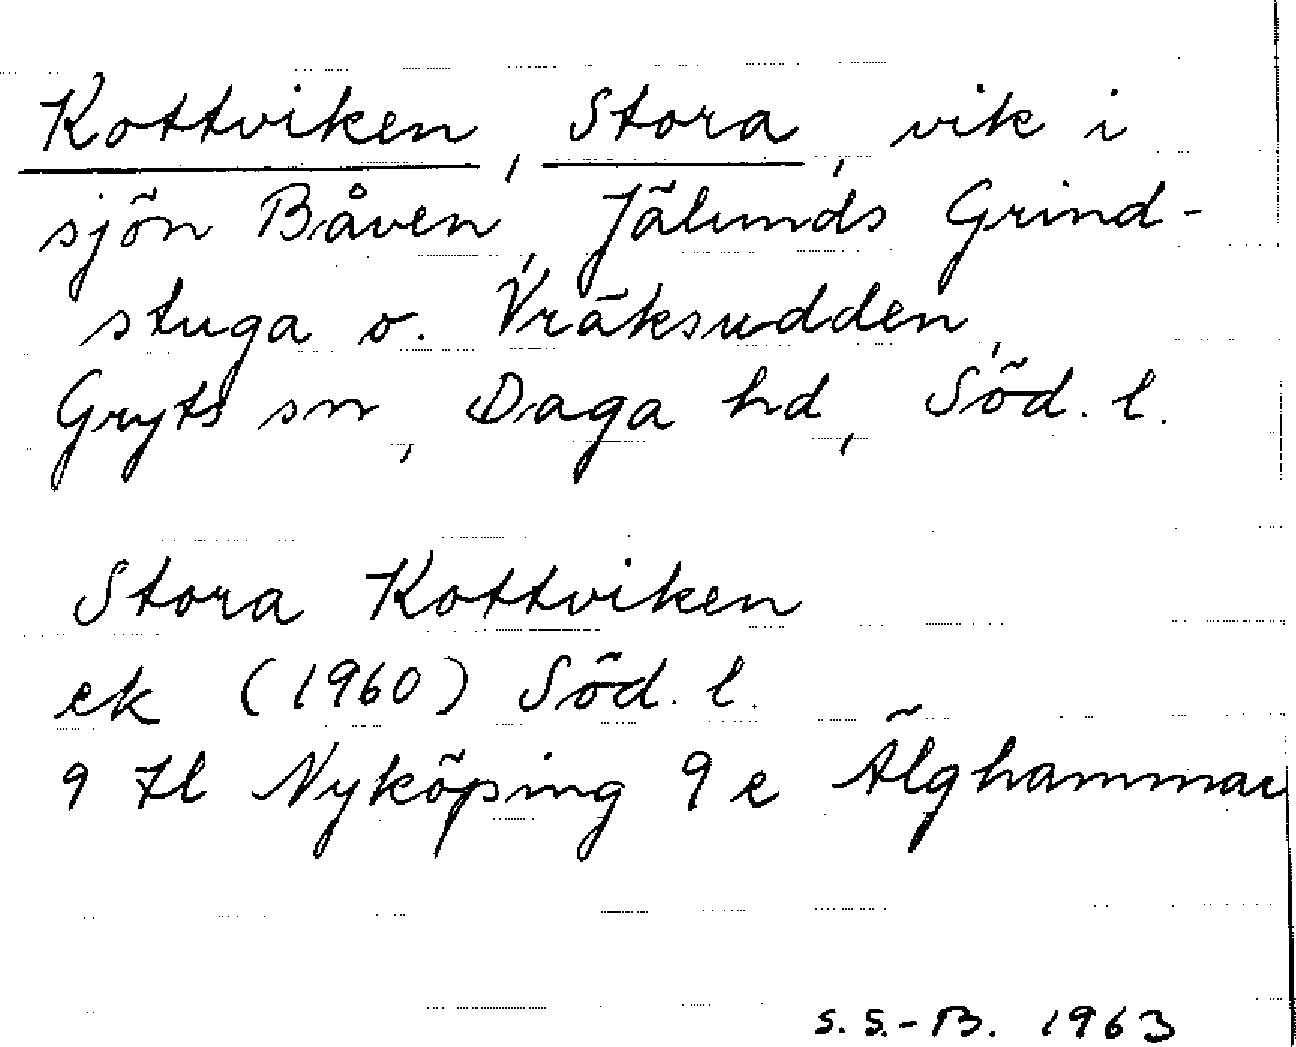 Kottviken, Stora, vik i
sjön Båven, Jälunds Grind-
stuga o. Vräksudden,
Gryts sn, Daga hd, Söd. l.
Stora Kottviken
ek (1960) Söd. l.
9 tl Nyköping 9 e Älghammar
S. S.-B. 1963